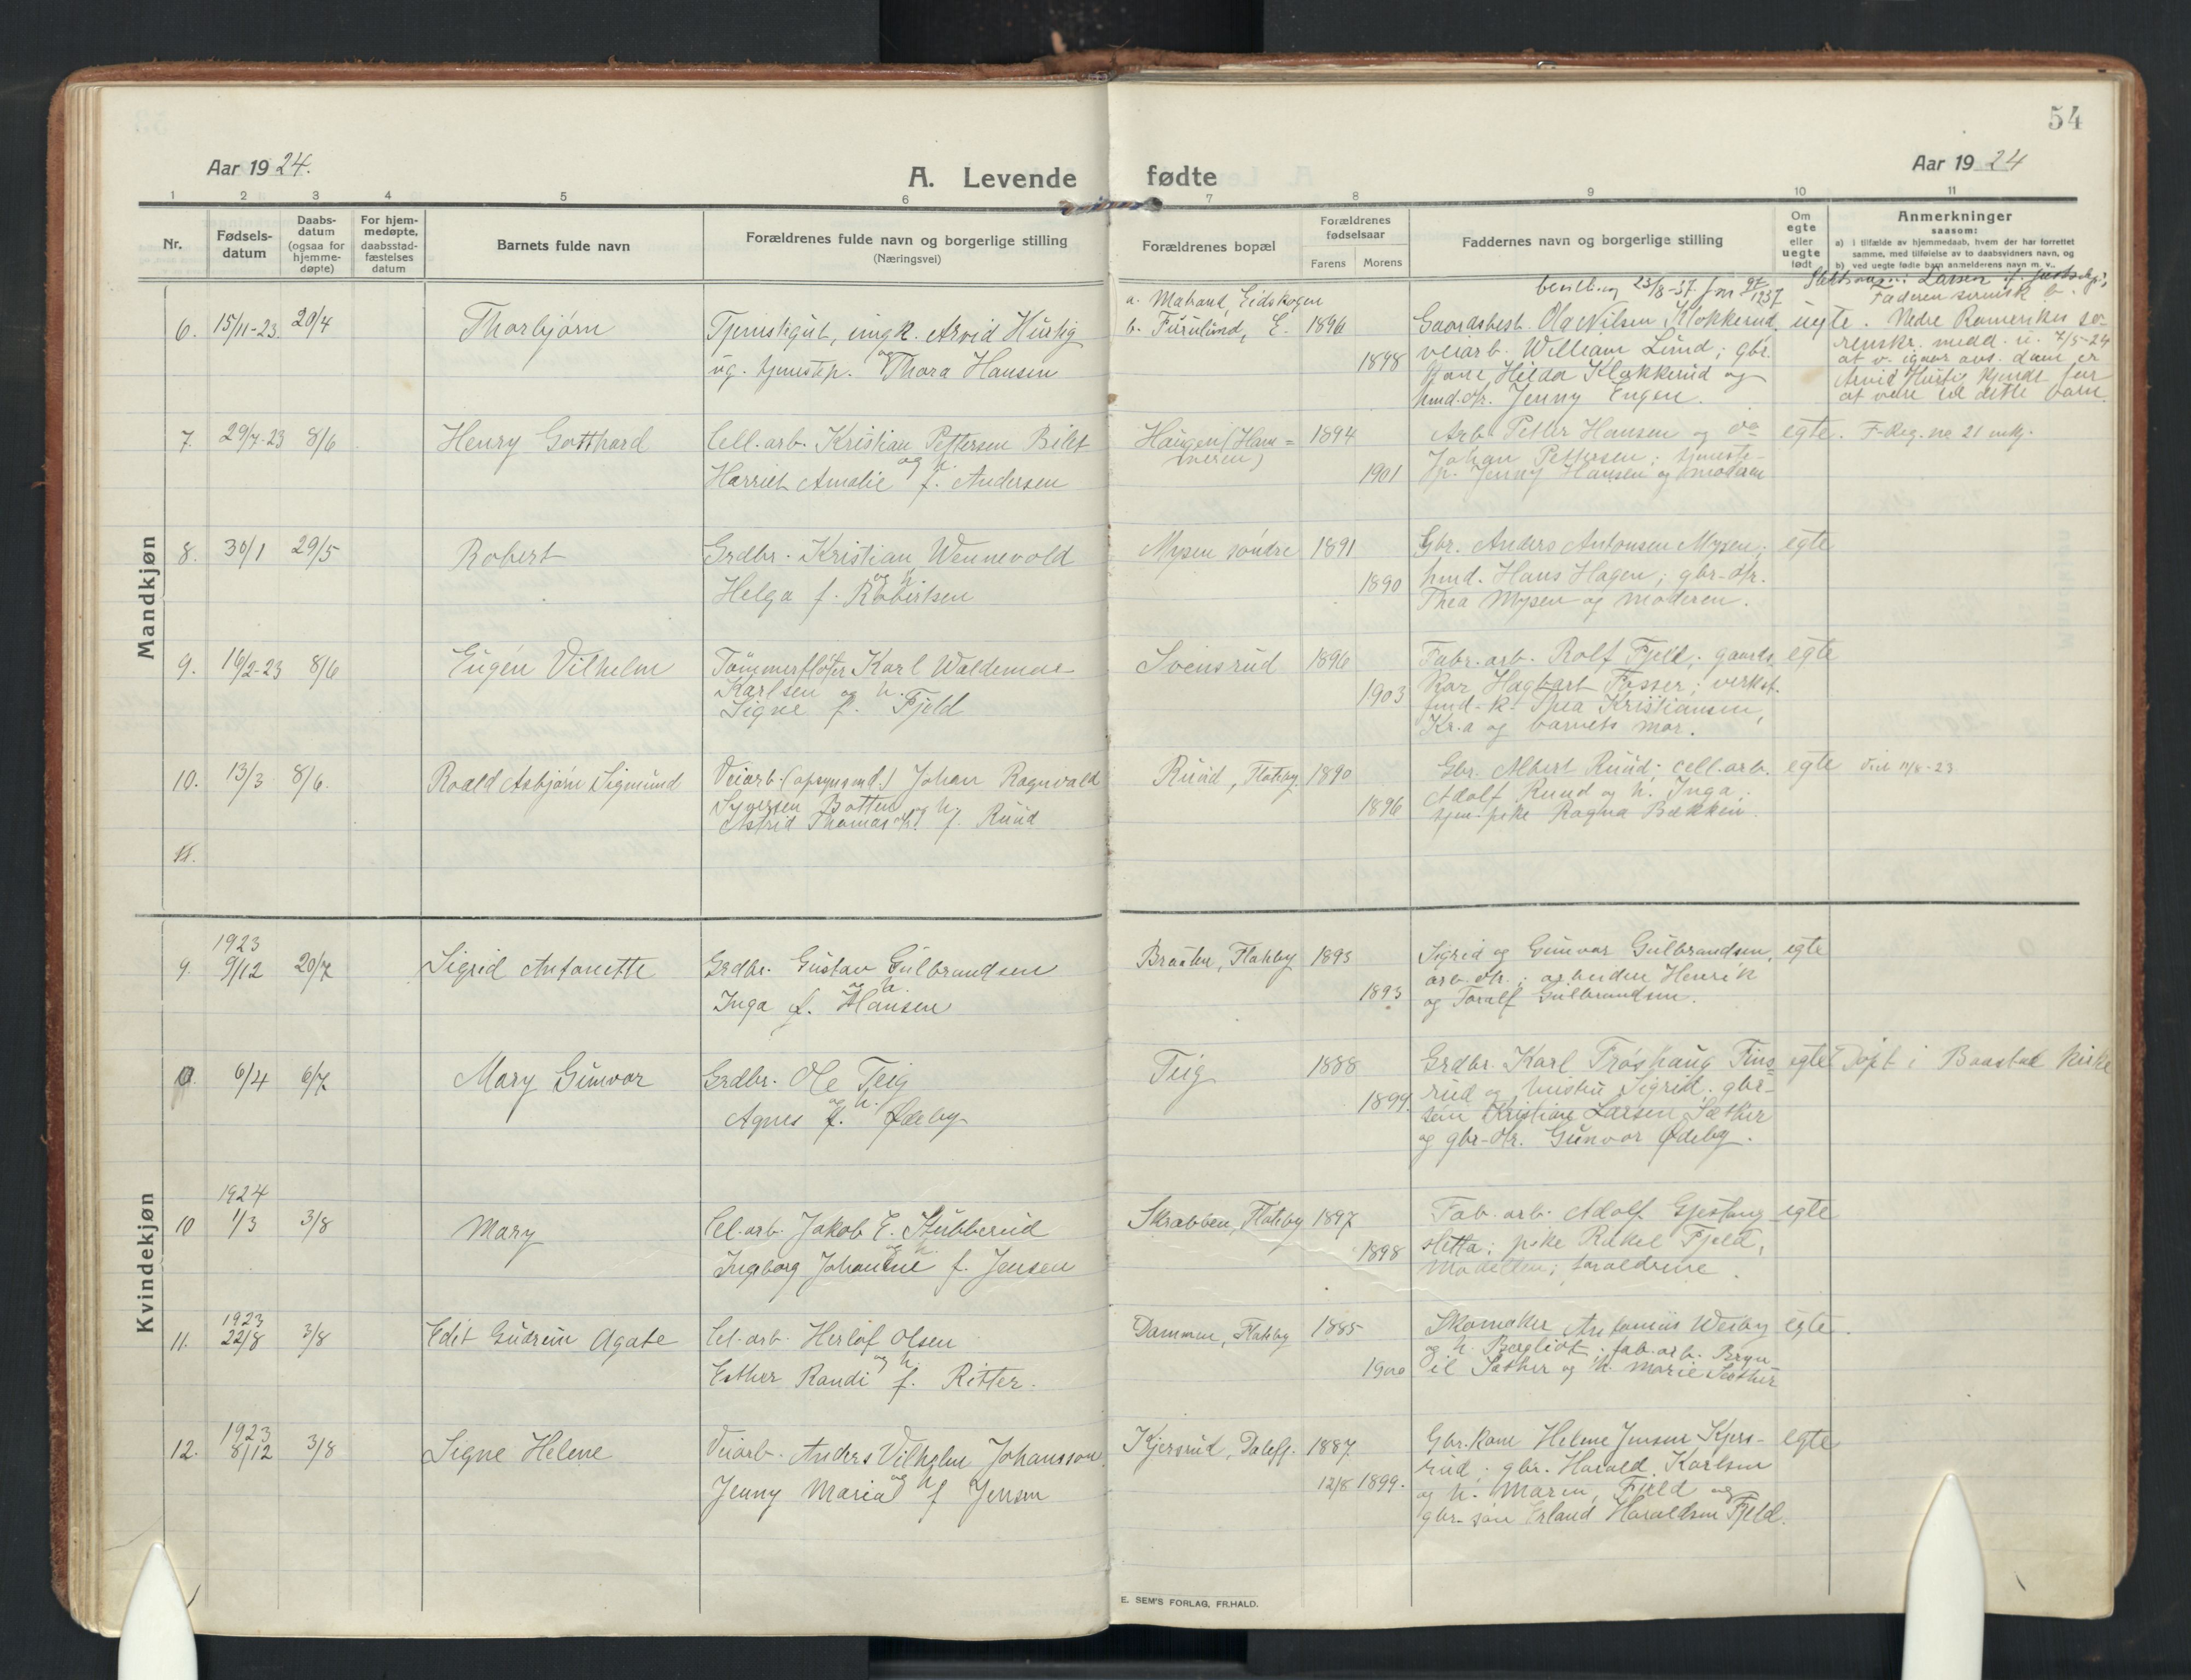 54
Aar 1924.
A. Levende fødte
Aar 1924
1 2 3 4 5 6 7 8 9 10 11
Nr.
Fødsels-
datum
Daabs-
datum
(ogsaa for
hjemme-
døpte)
For hjem-
medøpte,
daabsstad-
fæstelses
datum
Barnets fulde navn
Forældrenes fulde navn og borgerlige stilling
(Næringsvei)
Forældrenes bopæl
Forældrenes
fødselsaar
Farens Morens
Faddernes navn og borgerlige stilling
Om
egte
eller
uegte
født
Anmerkninger
saasom:
a) i tilfælde av hjemmedaab, hvem der har forrettet
samme, med tilføielse av to daabsvidners navn, og
b) ved uegte fødte barn anmelderens navn m. v.
Mandkjøn
6. 15/11-23. 20/4 Thorbjørn
Tjenestegut, ungk. Arvid Hustig
og
ug. tjenestep. Thora Hansen
a. Matrand, Eidskogen
b. Furulund, E. 1896
1898
Gaardsbest. Ola Nilsen Klokkerud,
veiarb. William Lund; gbr.
kone Helda Klokkerud og
hmd.dtr. Jenny Engen.
uegte.
Faderen svensk
Nedre Romerikes so-
renskr. medd. u. 7/5-24
at v. igaar avs. dom er
Arvid Hustig kjendt for
at være til dette barn.
7. 29/7-23 8/6 Henry Gotthard
Cell.arb. Kristian Pettersen Bilet
og h.
Harriet Amalie f. Andersen
Haugen (Ham=
meren)
1894
1901
Arb. Petter Hansen og do
Johan Pettersen; tjeneste-
p. Jenny Hansen og moderen
egte. F-Reg. no 21
8. 30/1 29/5 Robert
Grdbr. Kristian Wennevold
og h.
Helga f. Robertsen
Mysen søndre 1891
1890
Gbr. Anders Antonsen Mysen;
hmd. Hans Hagen; gbr-dtr.
Thea Mysen og moderen.
egte
9. 16/2-23 8/6 Eugén Vilhelm
Tømmerfløter Karl Waldemar
Karlsen og h.
Signe f. Fjeld
Svensrud 1896
1903
Fabr.arb. Rolf Fjeld; gaards
kar Hagbart Fosser; verkst.
fmd-k. Thea Kristiansen,
Kr.a og barnets mor.
egte
10. 13/3 8/6. Roald Asbjørn Sigmund
Veiarb. (opsynsmd.) Johan Ragnvald
Syversen Botten og h.
Astrid Thomasdtr. f. Ruud
Ruud, Flateby. 1890
1896
Gbr. Albert Ruud; cell.arb.
Adolf Ruud og h. Inga;
tjen.-pike Ragna Bækken.
egte Viet 11/8-23.
11.
Kvindekjøn
9. 1923
9/12 20/7 Sigrid Antonette
Grdbr. Gustav Gulbrandsen
og h.
Inga f. Hansen
Braaten, Flateby 1893
1893
Sigrid og Gunvor Gulbrandsen,
arb.dtr.; arbeider Henrik
og Toralf Gulbrandsen.
egte
6/4 6/7 Mary Gunvor
Grdbr. Ole Teig
og h.
Agnes f. Ødeby
Teig 1888
1899.
Grdbr. Karl Trøshaug Fins=
rud og hustru Sigrid; gbr-
søn Kristian Larsen Sæther
og gbr-dtr. Gunvor Ødeby.
egte Døpt i Baastad kirke
10 1924
1/3 3/8 Mary
Cel.arb. Jakob E. Stubberud
og h.
Ingeborg Johanne f. Jensen
Skrabben, Flateby 1897
1898
Fab.arb. Adolf Gjestang
sletta; pike Rakel Fjeld,
Modellen; foreldrene.
egte
11. 1923
22/8 3/8 Edit Gudrun Agate
Cel-arb. Herlof Olsen
og h.
Esther Randi f. Ritter.
Dammen, Flateby 1885
1900
Skomaker Antonius Wesby
og h. Bergliot; fab.arb. Bryn-
il Sæther og h. Marie Sæther
egte.
12. 1923
8/12 3/8 Signe Helene
Veiarb. Anders Vilhelm Johansson
og h.
Jenny Maria f Jensen
Kjersrud, Dalefj. 1887.
12/8 1899.
Gbr.kone Helene Jensen Kjers-
rud; gbr. Harald Karlsen
og h. Maren, Fjeld og
gbr-søn Erland Haraldsen Fjeld.
egte
E. SEM'S FORLAG, FR.HALD.